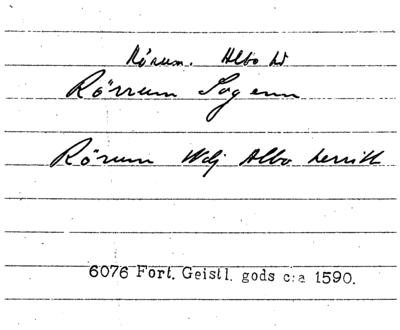 Rörum. Albo hd
Rörrum Sogenn
Rörum Udj Albo herritt
6076 Fort. Geistl. gods c:a 1590.